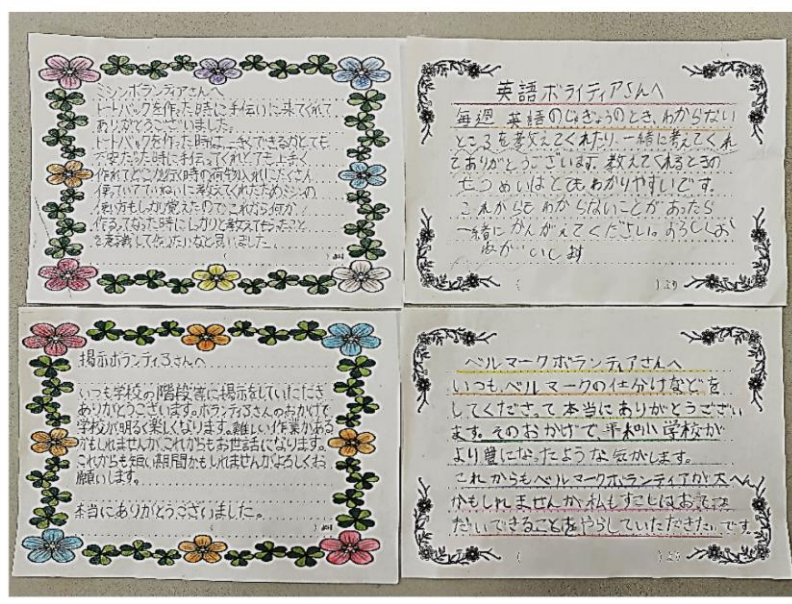 ミシンボランティアさんへ
トートバックを作った時に手伝いに来てくれて
ありがとうございました。
トートバックを作った時は上手くできるかとても
不安だった時に手伝ってくれとても上手く
作れてどこか行く時の荷物入れにたくさん
使っていてていねいに教えてくれたためミシンの
使い方もしっかり覚えたのでこれから何か
作るってなった時にしっかりと教えてもらったこと
を意識して作りたいなと思いました
( )より
英語ボライティアさんへ
毎週 英語のじゅぎょうのとき、わからない
ところを教えてくれたり、一緒に考えてくれ
てありがとうございます。教えてくれるときの
せつめいはとてもわかりやすいです。
これからもわからないことがあったら
一緒にかんがえてください。よろしくお
ねがいします
( )より
掲示ボランティアさんへ
いつも学校の階段等に掲示をしていただき
ありがとうございます。ボランティアさんのおかげで
学校が明るく楽しくなります。難しい作業がある
かもしれませんがこれからもお世話になります。
これからも短い期間かもしれませんがよろしくお
願いします。
本当にありがとうございました。
( )より
ベルマークボランティアさんへ
いつもベルマークの仕分けなどを
してくださって本当にありがとうござい
ます。そのおかげで、平和小学校が
より豊になったような気がします。
これからもベルマークボランティアが大へん
かもしれませんが私もすこしはおてつ
だいできることをやらしていただきたいです。
( )より